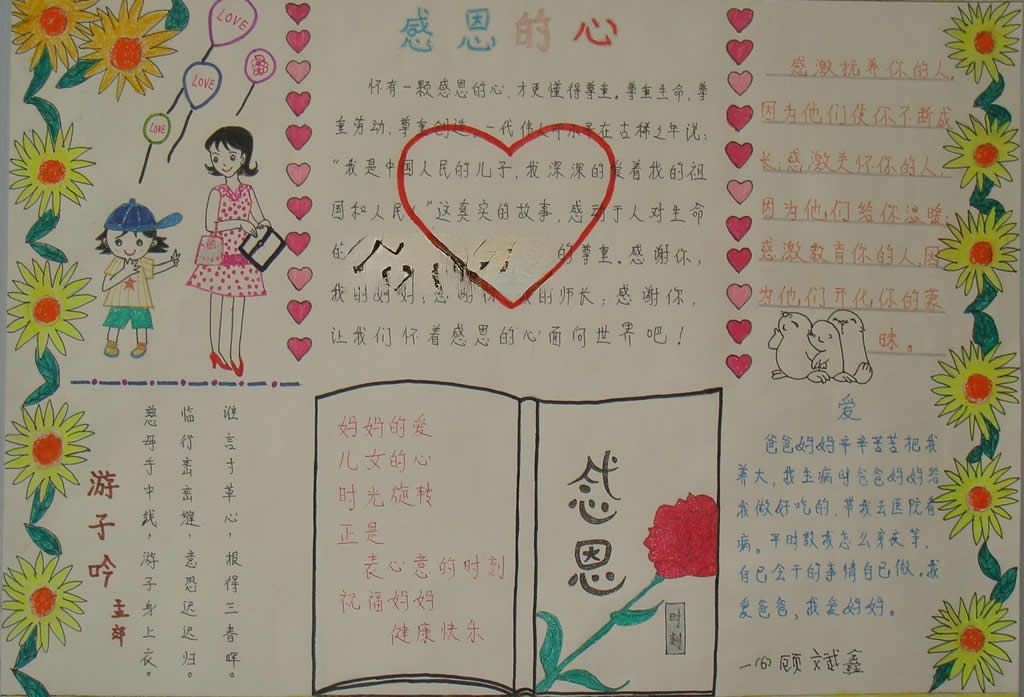 LOVE
LOVE
LOVE
感恩的心
怀有一颗感恩的心，才更懂得尊重。尊重生命，尊
重劳动，尊重创造。一代伟人邓小平在古稀之年说：
“我是中国人民的儿子，我深深的爱着我的祖
国和人民”这真实的故事，感动于人对生命
的 的尊重。感谢你，
我的妈妈；感谢你 我的师长；感谢你，
让我们怀着感恩的心面向世界吧！
感激抚养你的人，
因为他们使你不断成
长；感激关怀你的人，
因为他们给你温暖；
感激教育你的人，因
为他们开化你的蒙
昧。
游子吟
郊
慈母手中线，游子身上衣。
临行密密缝，意恐迟迟归。
谁言寸草心，报得三春晖。
妈妈的爱
儿女的心
时光旋转
正是
表心意的时刻
祝福妈妈
健康快乐
感恩
时刻
爱
爸爸妈妈辛辛苦苦把我
养大，我生病时爸爸妈妈给
我做好吃的，带我去医院看
病。平时教我怎么穿衣等，
自己会干的事情自己做。我
爱爸爸，我爱妈妈。
一(6) 顾斌鑫